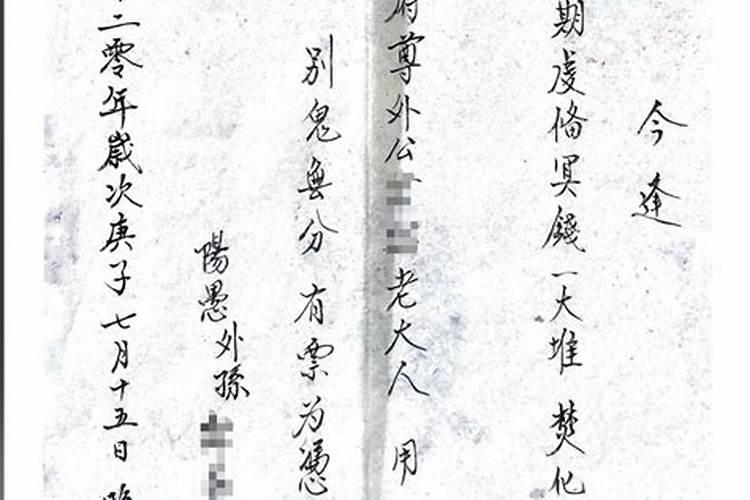 今逢
期虔俻冥錢一大堆 焚化
府尊外公老大人 用
别鬼無分有票为憑
陽愚外孫
二零年歲次庚子七月十五日